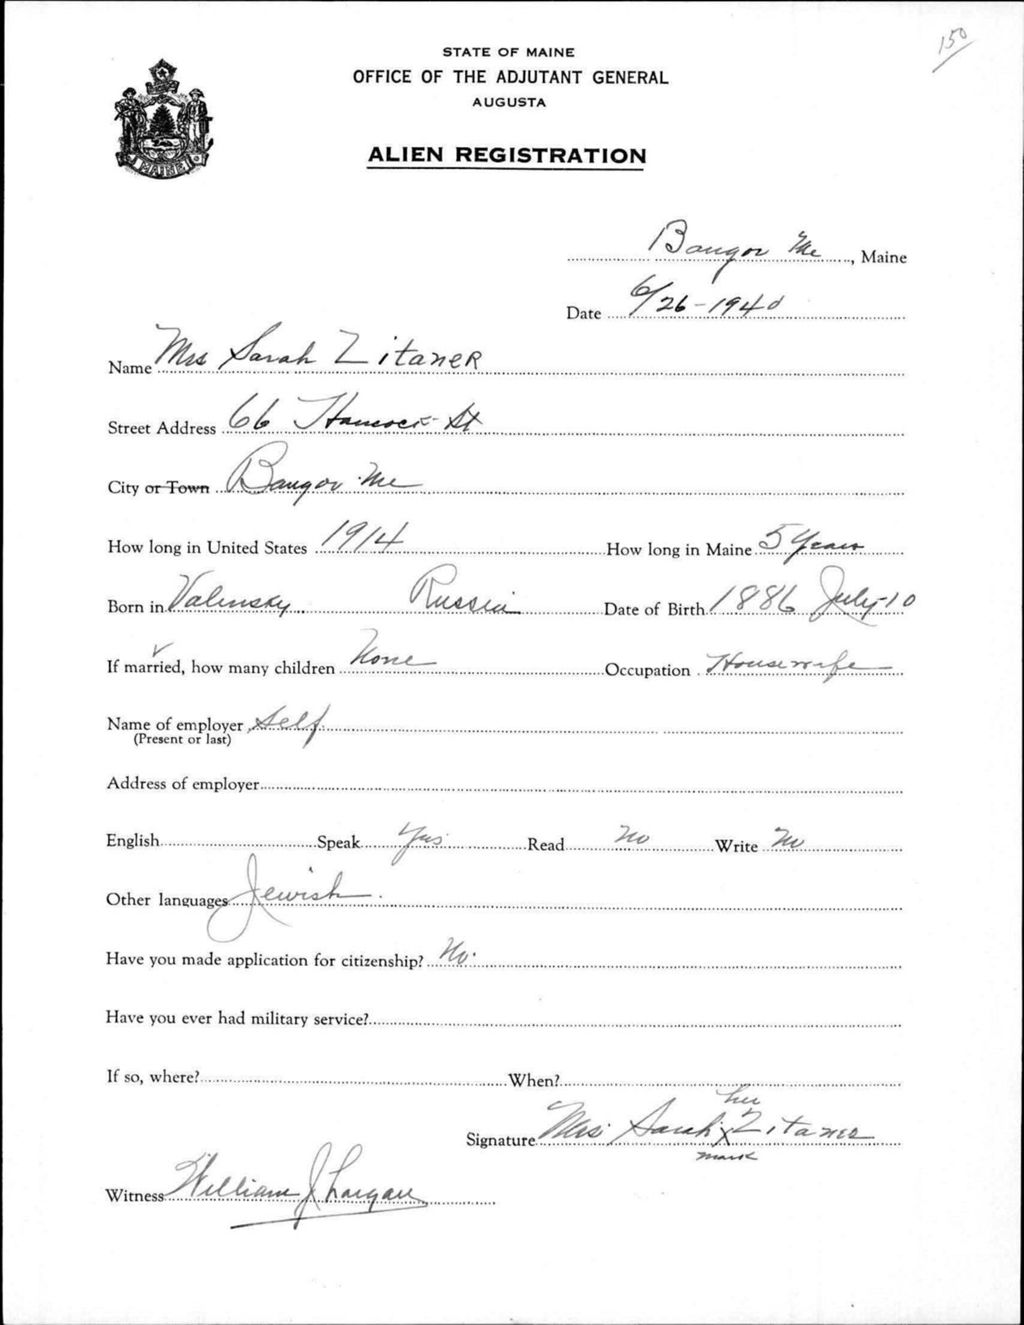 150
STATE OF MAINE
OFFICE OF THE ADJUTANT GENERAL
AUGUSTA
ALIEN REGISTRATION
MAINE
Bangor Me, Maine
Date 6/26-1940
Name Mrs Sarah Zitaner
Street Address 66 Hancock St
City or Town Bangor Me
How long in United States 1914 How long in Maine 5 Years
Born in Valinsky Russia Date of Birth 1886 July-10
If married, how many children None Occupation Housewife
Name of employer Self
(Present or last)
Address of employer
English Speak Yes Read No Write No
Other languages Jewish.
Have you made application for citizenship? No.
Have you ever had military service?
If so, where? When?
her
Signature Mrs Sarah X Zitaner
mark
Witness William J